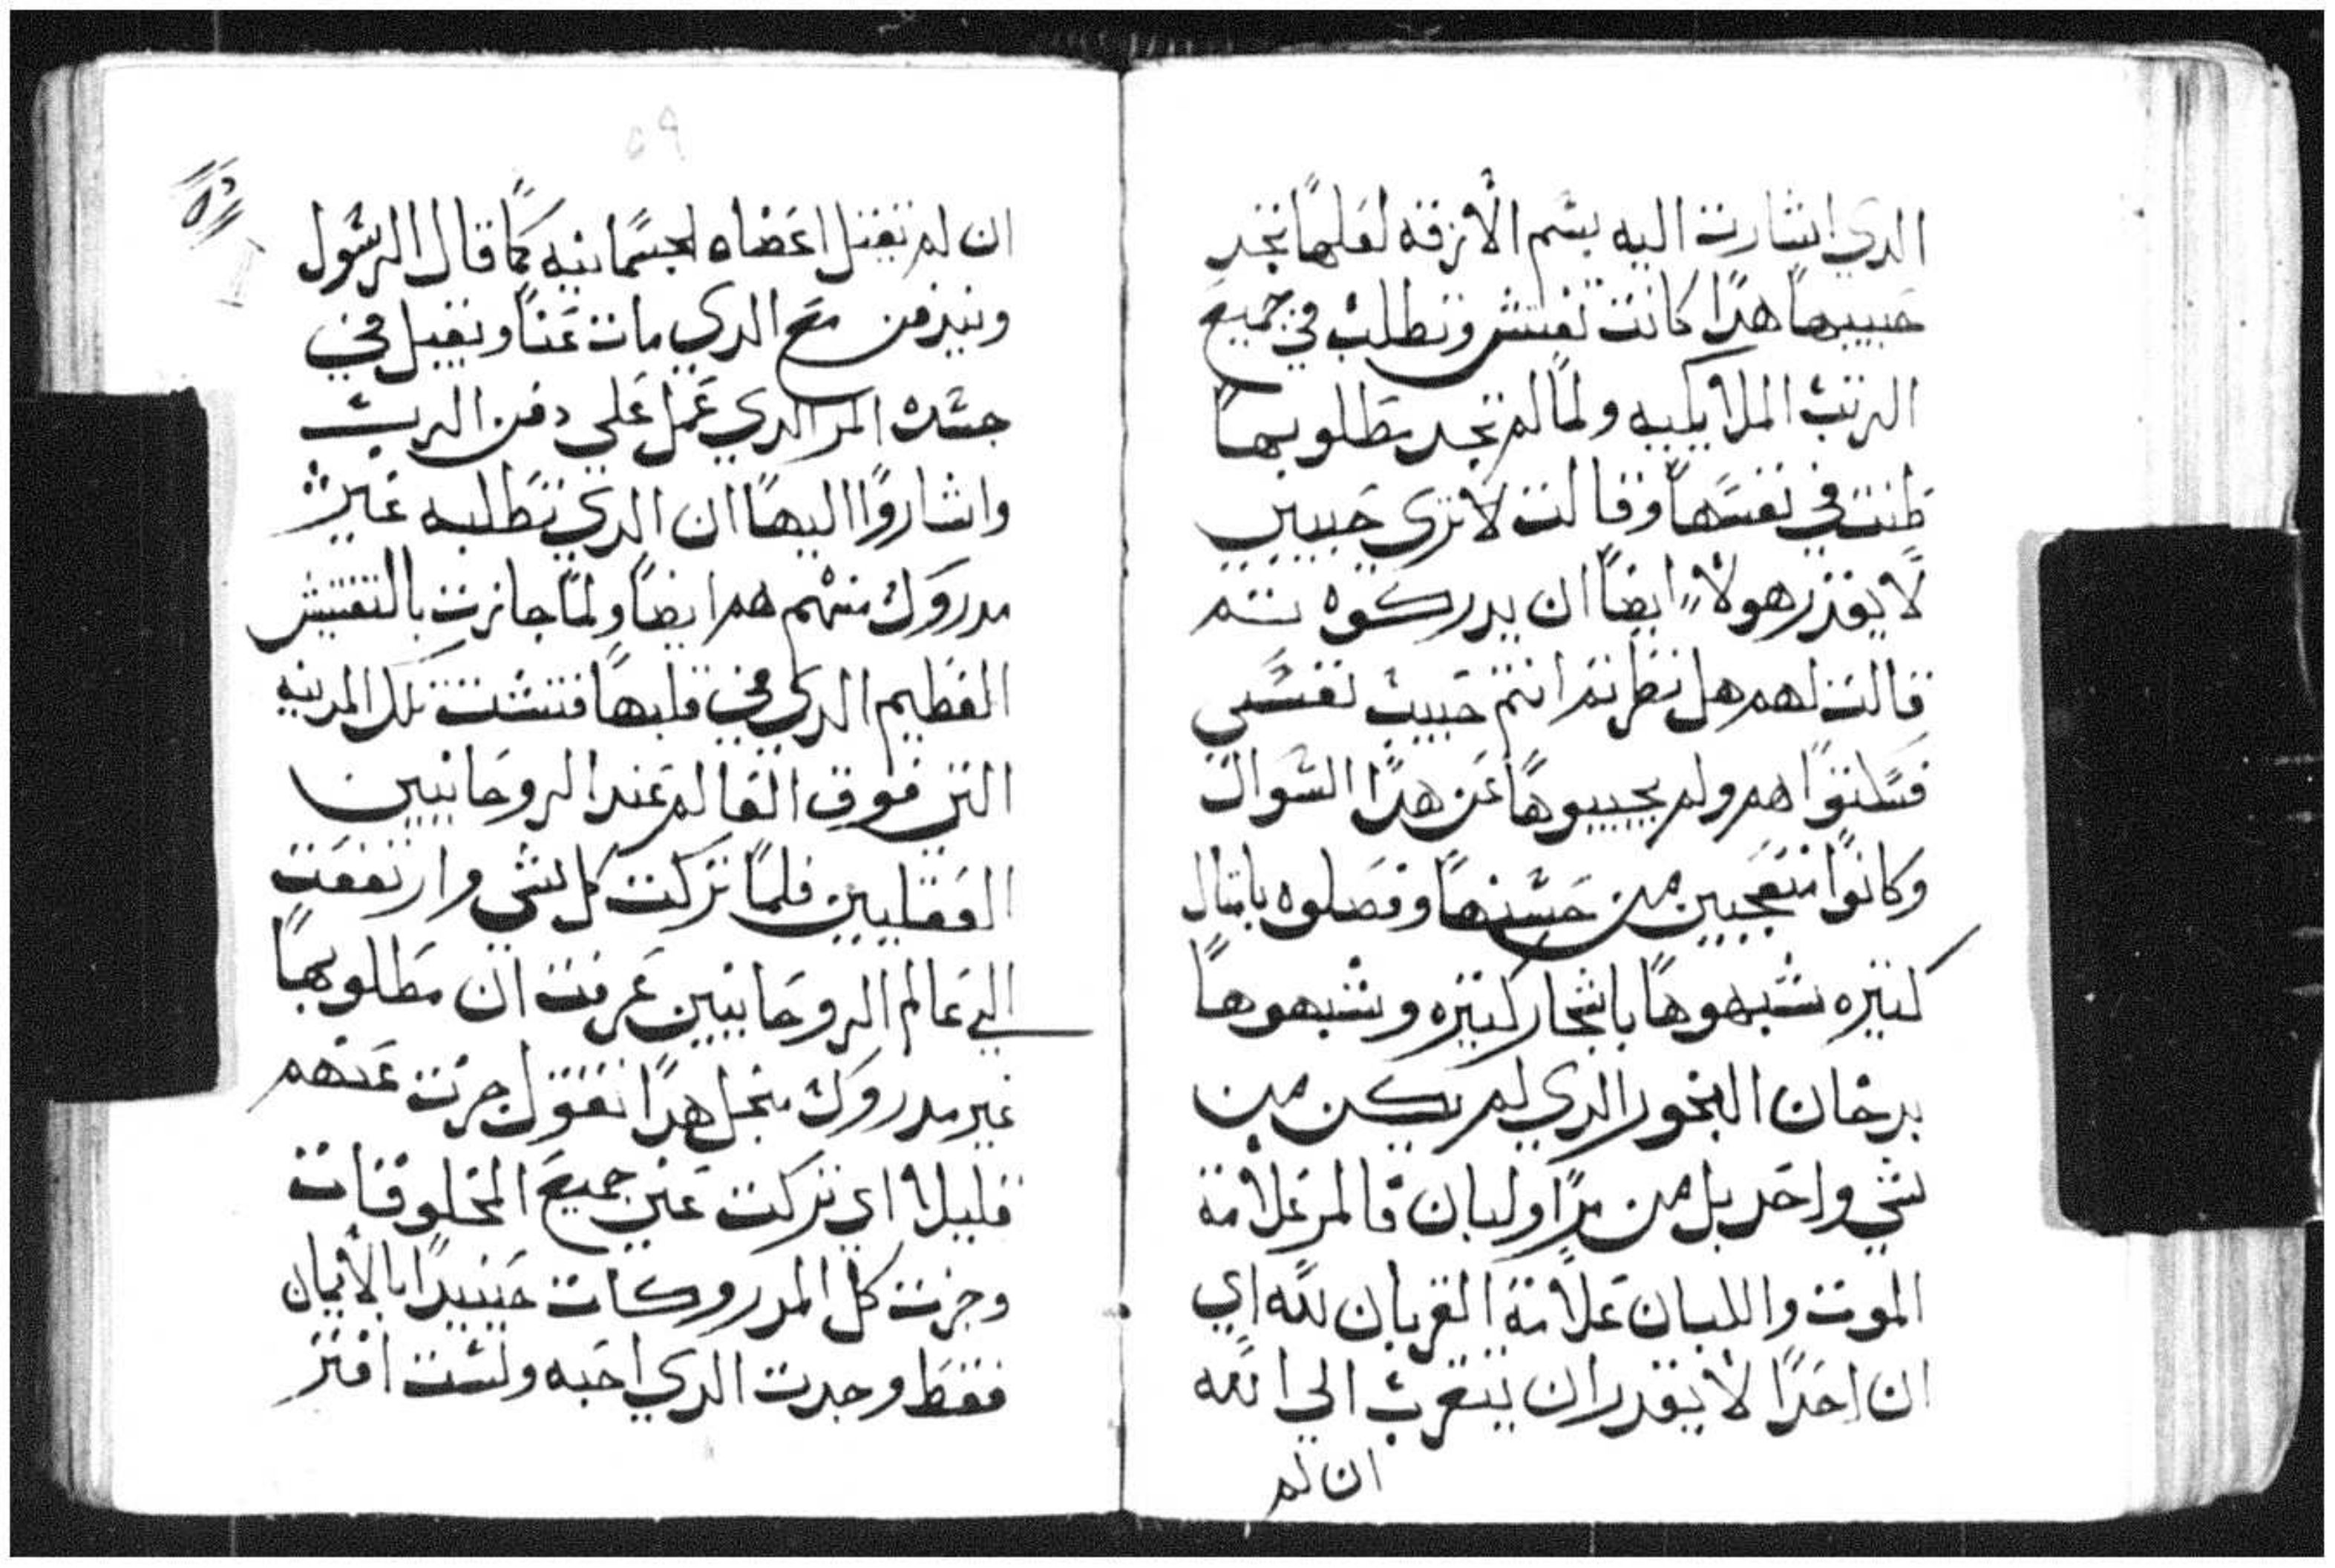 الدي اشارت اليه بسم الأزقه لعلها تجد
حبيبها هدا كانت تفتش وتطلب في جميع
الرتب الملايكيه ولما لم تجد مطلوبها
طنت في نفسها وقالت لا تري حبيبي
لا يقدر هولاء ايضا ان يدركوه تتم
قالت لهم هل نظرتم انتم حبيب نفسي
فسكتوا هم ولم يجيبوها عن هدا السوال
وكانوا متعجبين من حسنها وفصلوه بامتال
كتيره شبهوها باشجار كتيره وشبهوها
بدخان البخور الدي لم يكن من
شي واحد بل من مرا ولبان فالمر علامة
الموت واللبان علامة القربان لله اي
ان احدا لا يقدر ان يتقرب الي الله
ان لم
٥٩
ان لم تقتل اعضاه الجسمانيه كما قال الرسول
ويندفن مع الدي مات عنا ويقبل في
جسده المر الدي عمل علي دفن الرب
واشاروا اليها ان الدي تطلبه غير
مدروك منهم هم ايضا ولما جازت بالتفتيش
العظيم الدي في قلبها فتشت تلك المدينه
التي فوق العالم عند الروحانيين
العقليين فلما تركت كل شي وارتفعت
الي عالم الروحانيين عرفت ان مطلوبها
غير مدروك منجل هدا تقول جزت عنهم
قليلا اي تركت عني جميع المخلوقات
وجزت كل المدروكات حينيدا بالأيمان
فقط وجدت الدي احبه ولست افتر